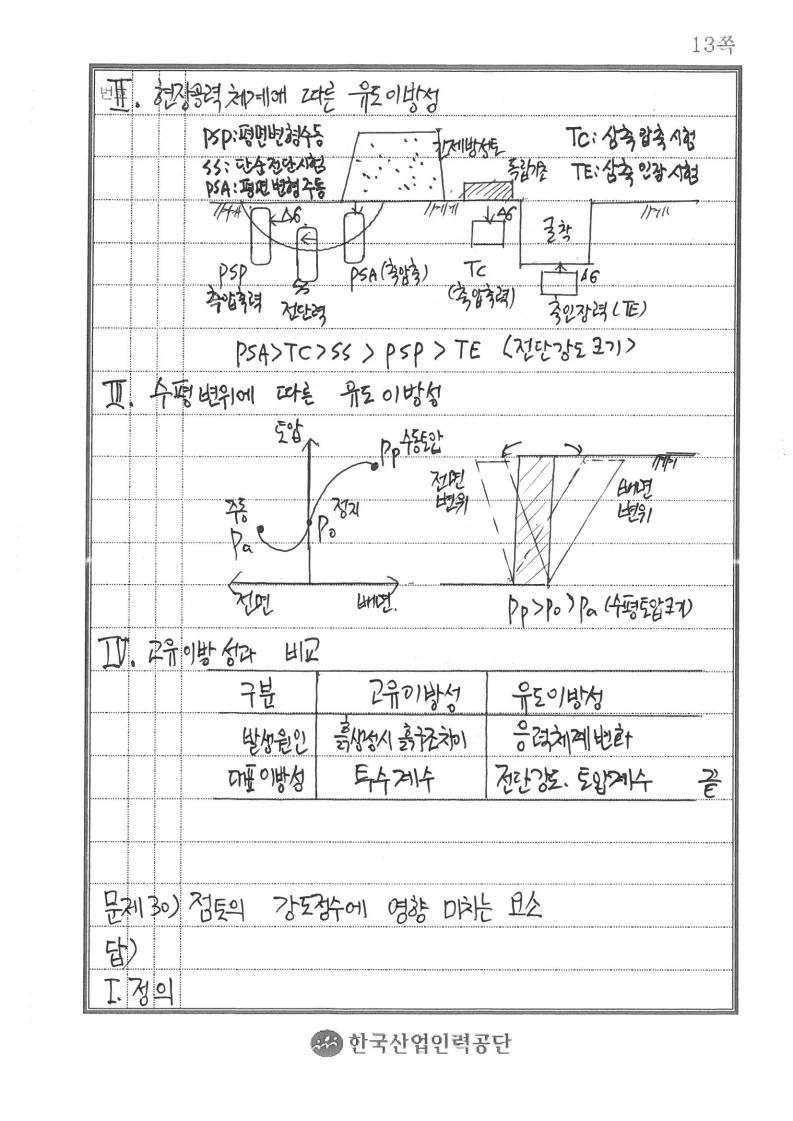 13쪽
번호
II. 현장응력 체계에 따른 유도이방성
PSP: 평면변형수동
SS: 단순전단시험
PSA: 평면변형주동
한제방성토
독립기초
TC: 삼축압축시험
TE: 삼축인장시험
Δσ
Δσ
굴착
Δσ
PSP
측압축력
SS
전단력
PSA (축압축)
TC
(축압축력)
축인장력 (TE)
PSA>TC>SS > PSP > TE <전단강도크기>
III. 수평변위에 따른 유도이방성
토압
Pp 수동토압
주동
Pa
정지
Po
전면
배면.
전면
변위
배면
변위
Pp>Po>Pa (수평토압크기)
IV. 고유이방성과 비교
구분 고유이방성 유도이방성
발생원인 흙생성시 흙구조차이 응력체계변화
대표이방성 투수계수 전단강도. 토압계수 끝
문제 30) 점토의 강도정수에 영향 미치는 요소
답)
I. 정의
한국산업인력공단